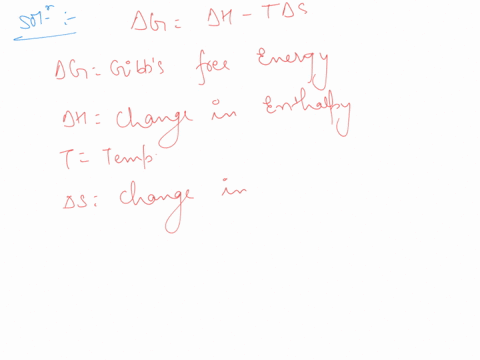 Solⁿ:- ΔG = ΔH - TΔS
ΔG = Gibb's free Energy
ΔH = Change in Enthalpy
T = Temp.
ΔS: Change in